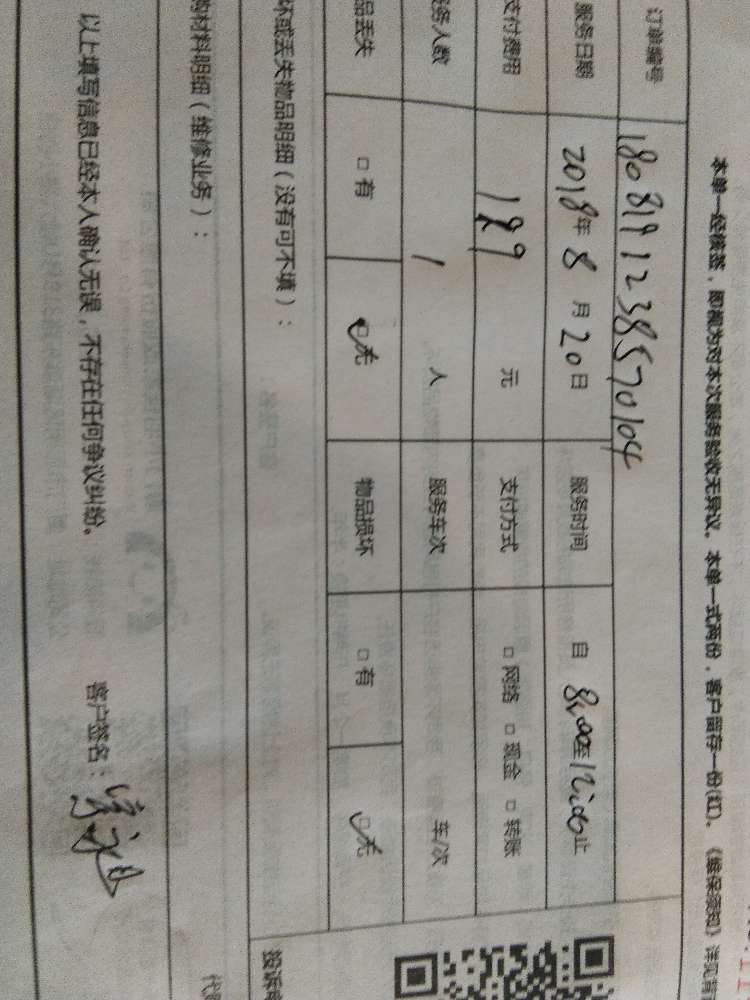 本单一经核签，即视为对本次服务验收无异议。本单一式两份，客户留存一份(红)。《维保须知》详见背
订单编号 1808191238570104
服务日期 2018年8月20日 服务时间 自8:00至12:00止
支付费用 189 元 支付方式 □网络 □现金 □转账
务人数 1 人 服务车次 车/次
品丢失 □有 □无 物品损坏 □有 □无
坏或丢失物品明细（没有可不填）：
投诉
材料明细（维修业务）：
以上填写信息已经本人确认无误，不存在任何争议纠纷。 客户签名：